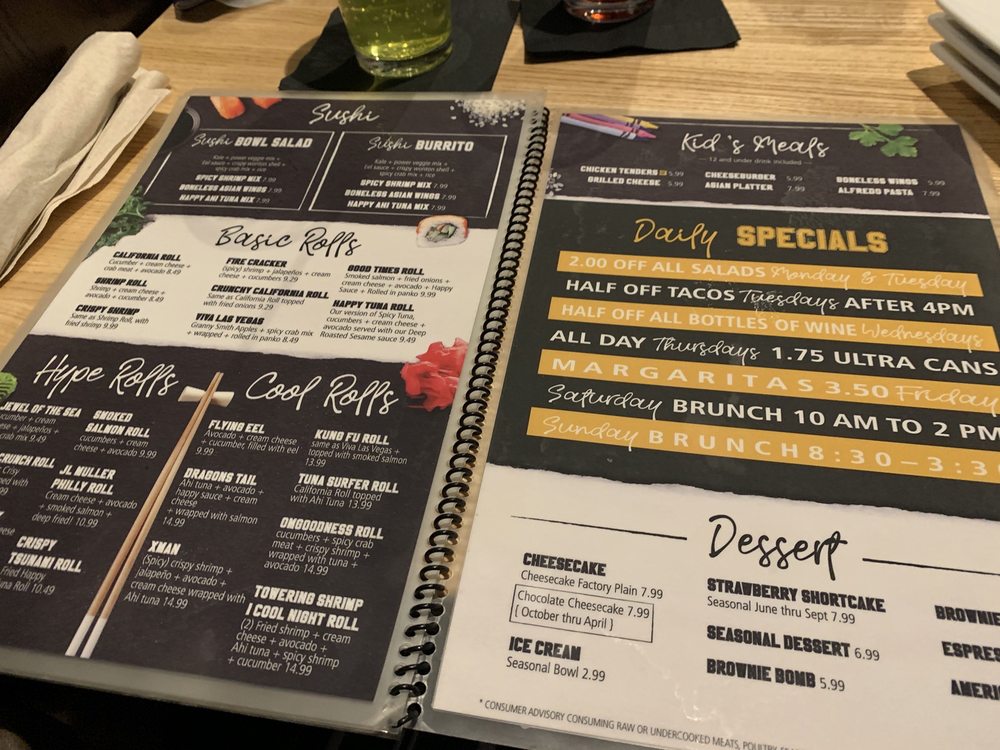 Sushi
Sushi BOWL SALAD
Kale + power veggie mix +
Eel sauce + crispy wonton shell +
spicy crab mix + rice
SPICY SHRIMP MIX 7.99
BONELESS ASIAN WINGS 7.99
HAPPY AHI TUNA MIX 7.99
Sushi BURRITO
Kale + power veggie mix +
Eel sauce + crispy wonton shell +
spicy crab mix + rice
SPICY SHRIMP MIX 7.99
BONELESS ASIAN WINGS 7.99
HAPPY AHI TUNA MIX 7.99
Basic Rolls
CALIFORNIA ROLL
Cucumber + cream cheese +
crab meat + avocado 8.49
SHRIMP ROLL
Shrimp + cream cheese +
avocado + cucumber 8.49
CRISPY SHRIMP
Same as Shrimp Roll, with
fried shrimp 9.99
FIRE CRACKER
(spicy) shrimp + jalapeños + cream
cheese + cucumbers 9.29
CRUNCHY CALIFORNIA ROLL
Same as California Roll topped
with fried onions 9.29
VIVA LAS VEGAS
Granny Smith Apples + spicy crab mix
+ wrapped + rolled in panko 8.49
GOOD TIMES ROLL
Smoked salmon + fried onions +
cream cheese + avocado + Happy
Sauce + Rolled in panko 9.99
HAPPY TUNA ROLL
Our version of Spicy Tuna,
cucumbers + cream cheese +
avocado served with our Deep
Roasted Sesame sauce 9.49
Hype Rolls
JEWEL OF THE SEA
cucumber + cream
cheese + jalapeños +
crab mix 9.49
CRUNCH ROLL
SMOKED
SALMON ROLL
cucumbers + cream
cheese + avocado 9.99
JL MULLER
PHILLY ROLL
Cream cheese + avocado
+ smoked salmon +
deep fried! 10.99
CRISPY
TSUNAMI ROLL
Fried Happy
Tuna Roll 10.49
Cool Rolls
FLYING EEL
Avocado + cream cheese
+ cucumber, filled with eel
9.99
DRAGONS TAIL
Ahi tuna + avocado +
happy sauce + cream
cheese
+ wrapped with salmon
14.99
XMAN
(Spicy) crispy shrimp +
jalapeño + avocado +
cream cheese wrapped with
Ahi tuna 14.99
KUNG FU ROLL
same as Viva Las Vegas +
topped with smoked salmon
13.99
TUNA SURFER ROLL
California Roll topped
with Ahi Tuna 13.99
OMGOODNESS ROLL
cucumbers + spicy crab
meat + crispy shrimp +
wrapped with tuna +
avocado 14.99
TOWERING SHRIMP
1 COOL NIGHT ROLL
(2) Fried shrimp + cream
cheese + avocado +
Ahi tuna + spicy shrimp
+ cucumber 14.99
Kid's Meals
12 and under drink included
CHICKEN TENDERS 5.99
GRILLED CHEESE 5.99
CHEESEBURGER 5.99
ASIAN PLATTER 7.99
BONELESS WINGS 5.99
ALFREDO PASTA 7.99
Daily SPECIALS
2.00 OFF ALL SALADS Monday & Tuesday
HALF OFF TACOS Tuesdays AFTER 4PM
HALF OFF ALL BOTTLES OF WINE Wednesdays
ALL DAY Thursdays 1.75 ULTRA CANS
MARGARITAS 3.50 Friday
Saturday BRUNCH 10 AM TO 2 PM
Sunday BRUNCH 8:30-3:3
Dessert
CHEESECAKE
Cheesecake Factory Plain 7.99
Chocolate Cheesecake 7.99
{ October thru April }
ICE CREAM
Seasonal Bowl 2.99
STRAWBERRY SHORTCAKE
Seasonal June thru Sept 7.99
SEASONAL DESSERT 6.99
BROWNIE BOMB 5.99
BROWNIE
ESPRES
AMERI
* CONSUMER ADVISORY CONSUMING RAW OR UNDERCOOKED MEATS, POULTRY,